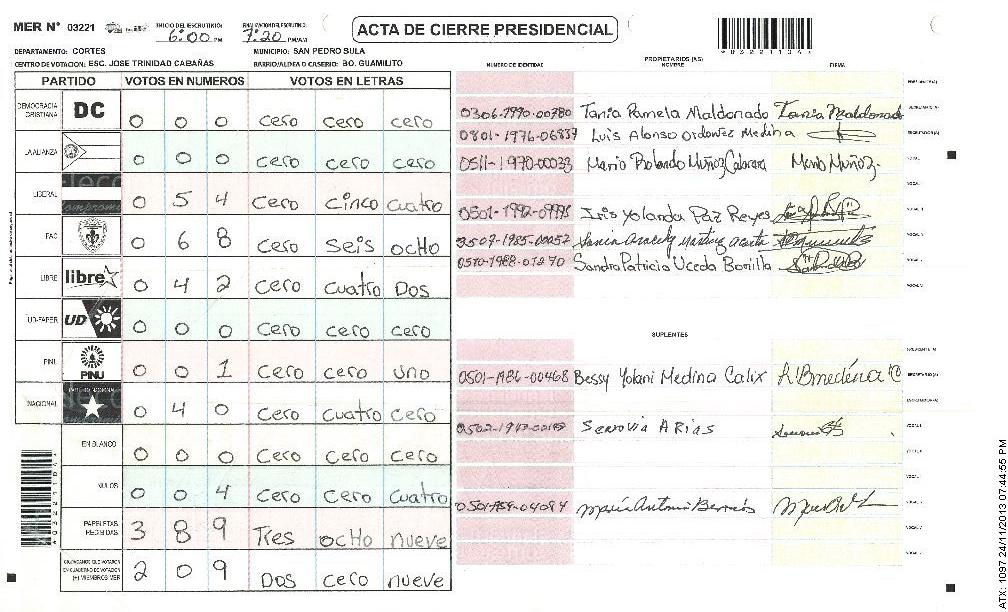 MER N° 03221 INICIO DEL ESCRUTINIO: 6:00 PM FINALIZACION DEL ESCRUTINIO: 7:20 PM/AM
ACTA DE CIERRE PRESIDENCIAL
DEPARTAMENTO: CORTES MUNICIPIO: SAN PEDRO SULA
CENTRO DE VOTACION: ESC. JOSE TRINIDAD CABAÑAS BARRIO/ALDEA O CASERIO: BO. GUAMILITO
PARTIDO VOTOS EN NUMEROS VOTOS EN LETRAS
DEMOCRACIA CRISTIANA DC 0 0 0 cero cero cero
LA ALIANZA 0 0 0 cero cero cero
LIBERAL 0 5 4 cero cinco cuatro
PAC 0 6 8 cero seis ocho
LIBRE libre 0 4 2 cero cuatro Dos
UD-FAPER UD 0 0 0 cero cero cero
PINU PINU 0 0 1 cero cero uno
NACIONAL 0 4 0 cero cuatro cero
EN BLANCO 0 0 0 cero cero cero
NULOS 0 0 4 cero cero cuatro
PAPELETAS RECIBIDAS 3 8 9 Tres ocHo nueve
CIUDADANOS QUE VOTARON EN CUADERNO DE VOTACION (+) MIEMBROS MER 2 0 9 Dos cero nueve
PROPIETARIOS (AS)
NUMERO DE IDENTIDAD NOMBRE FIRMA
0306-1990-00780 Tania Pamela Maldonado Tania Maldonado
0801-1976-06837 Luis Alonso Ordoñez Medina
0511-1970-00033 Mario Rolando Muñoz Cabrera Mario Muñoz.
0501-1992-09995 Iris Yolanda Paz Reyes
Sandra Patricia Uceda Bonilla
SUPLENTES
0501-1986-00468 Bessy Yolani Medina Calix
Senovia ARIAS
ATX: 1097 24/11/2013 07:44:55 PM